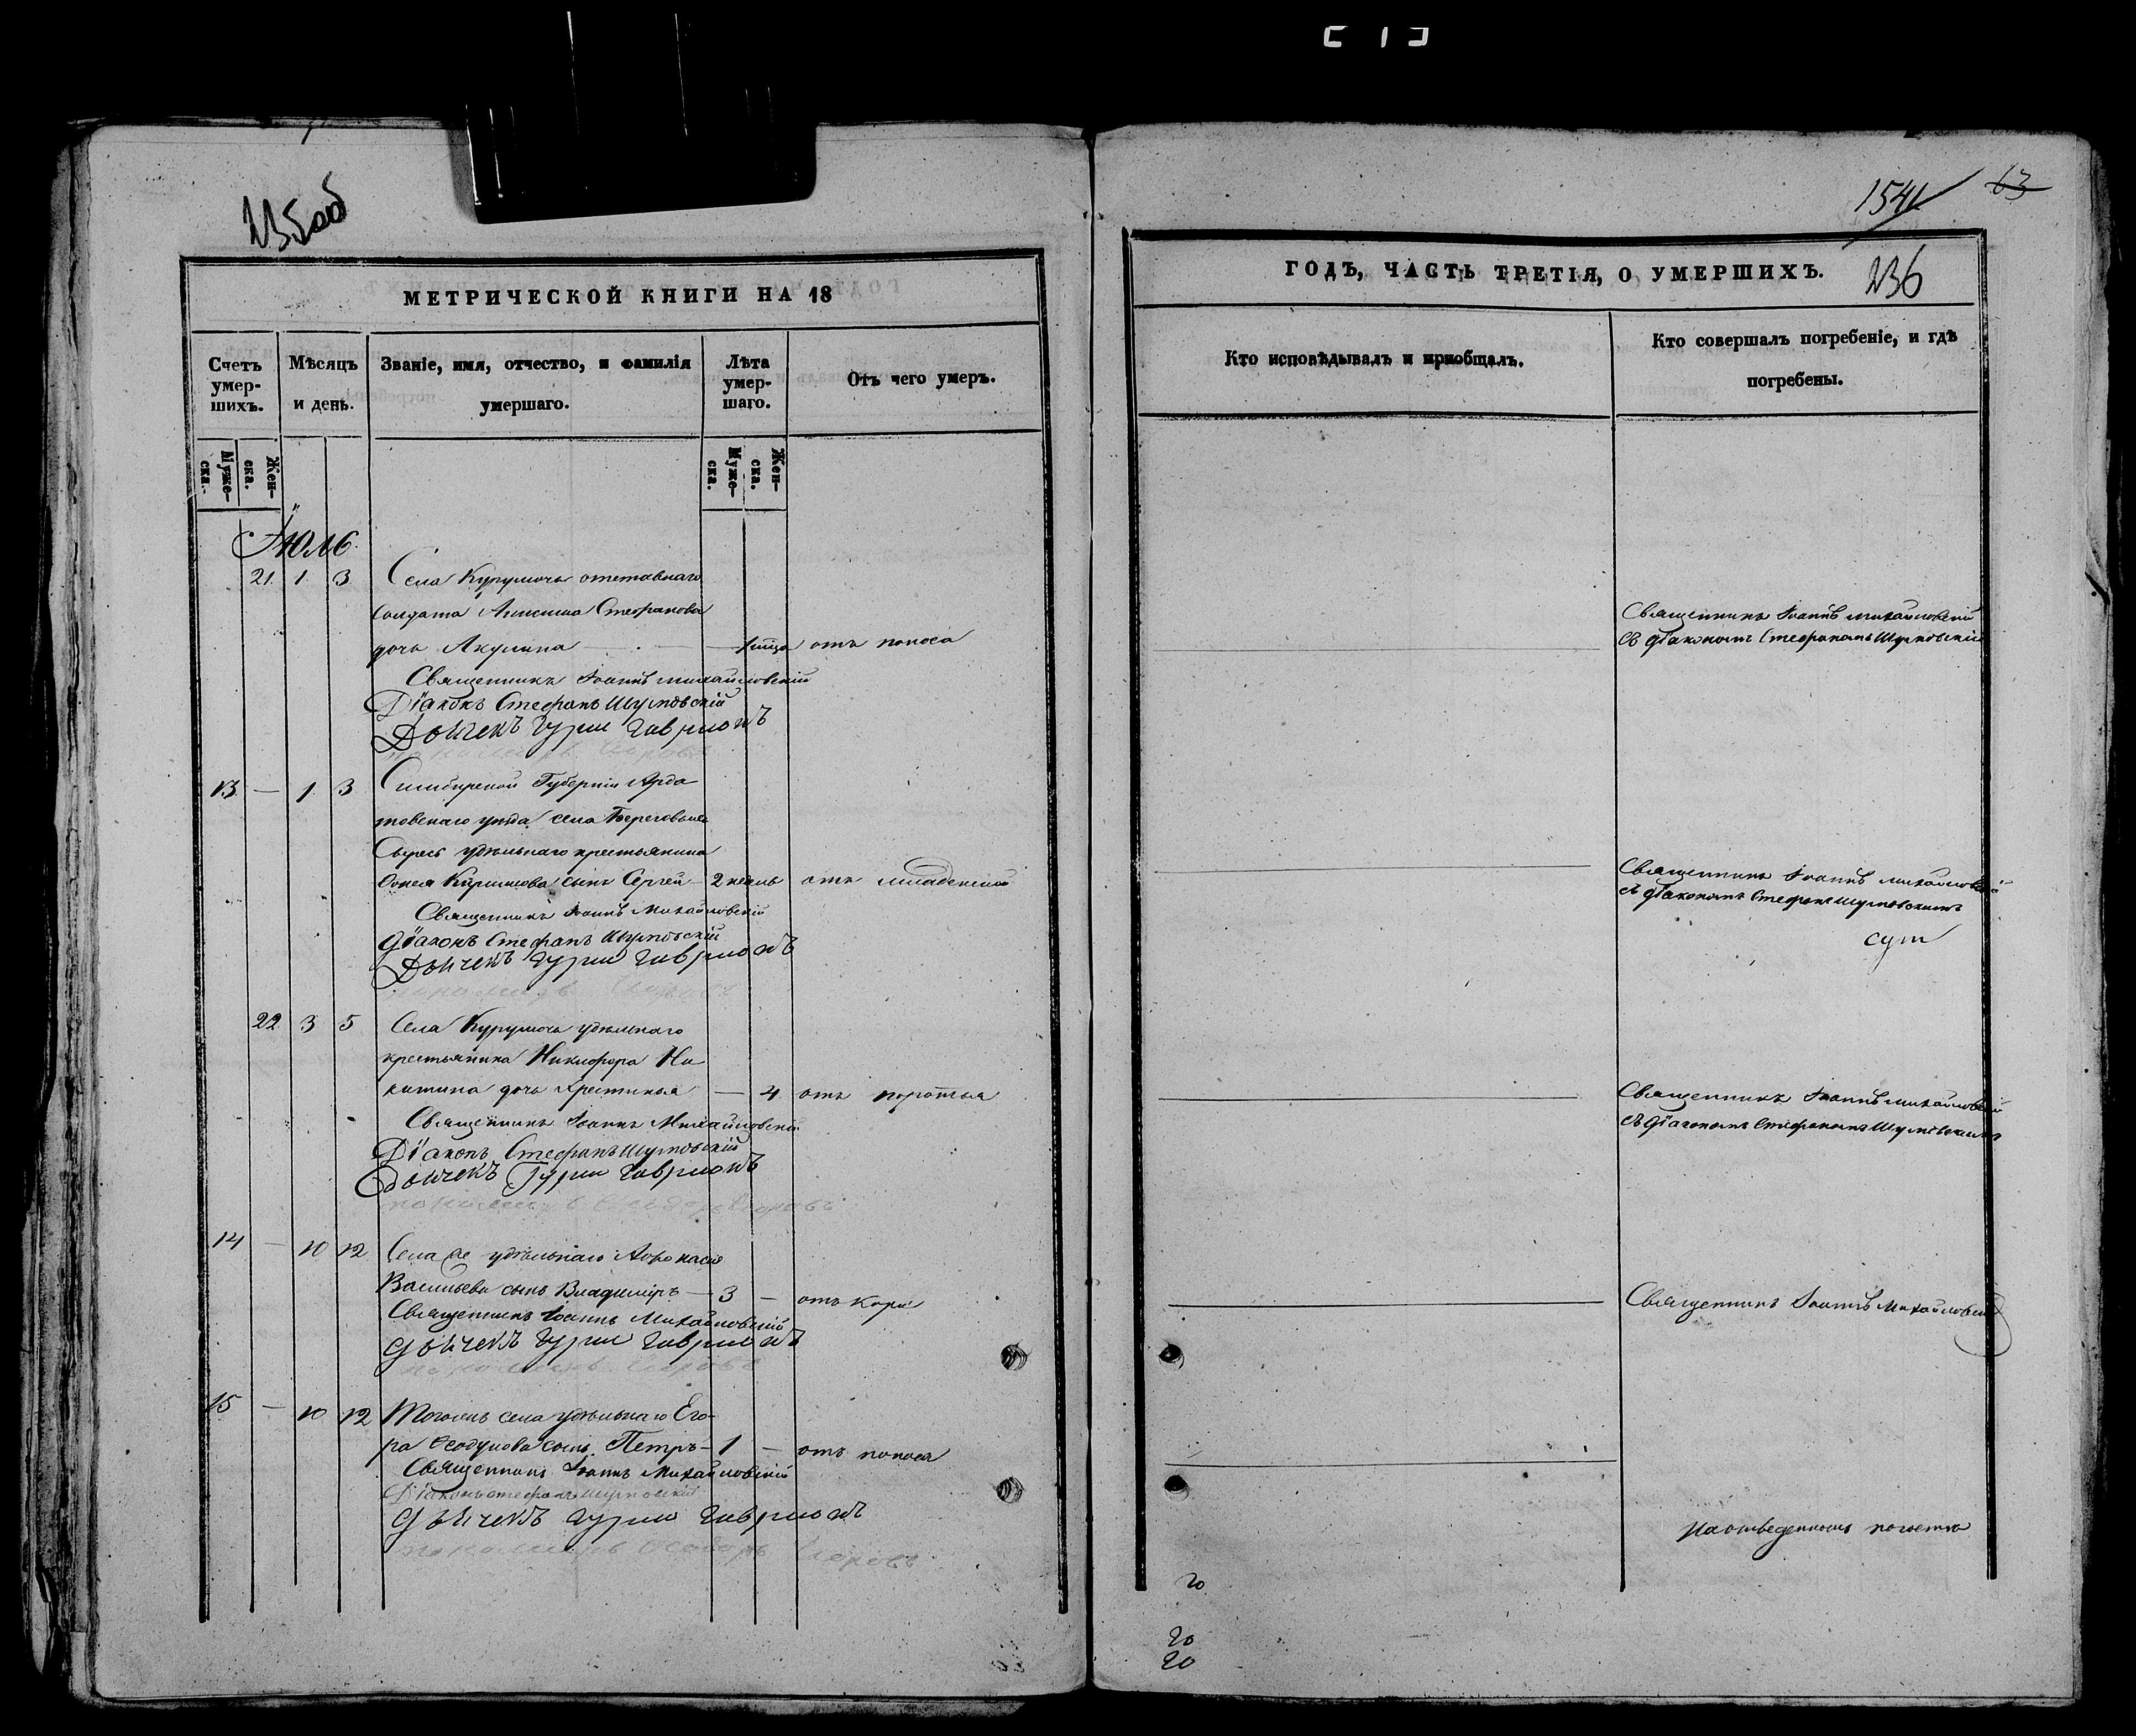 235 об
МЕТРИЧЕСКОЙ КНИГИ НА 18
Счетъ умер-шихъ.
Мѣсяцъ и день.
Званіе, имя, отчество, и фамилія умершаго.
Лѣта умер-шаго.
Отъ чего умеръ.
Муже-ска.
Жен-ска.
Муже-ска.
Жен-ска.
Июль
21. 1. 3 Села Курумоча отставнаго
солдата Анисима Стефанова
дочь Акулина от поноса
Священникъ Іоаннъ Михайловскій
Діаконъ Стефанъ Шумовскій
Дьячекъ Гурий Гаврилов
13. — 1. 3 Симбирской Губерніи Арда
товскаго уезда села Береговыхъ
Сыресь удѣльнаго крестьянина
Кирилова сынъ Сергей — 2 недель отъ младенской
Священникъ Іоаннъ Михайловскій
Діаконъ Стефанъ Шумовскій
Дьячекъ Гурий Гаврилов
22. 3 5 Села Курумоча удѣльнаго
крестьянина Никифора Ни
китина дочь Христинья — 4 отъ
Священникъ Іоаннъ Михайловскій
Діаконъ Стефанъ Шумовскій
Дьячекъ Гурий Гаврилов
14 — 10 12 Села удѣльнаго Афонасія
Васильева сынъ Владиміръ — 3 — отъ кори
Священникъ Іоаннъ Михайловскій
Дьячекъ Гурий Гаврилов
15 — 10 12 Тогожъ села удѣльнаго Его-
ра сынъ Петръ — 1 — отъ поноса
Священникъ Іоаннъ Михайловскій
Діаконъ Стефанъ Шумовскій
Дьячекъ Гурий Гаврилов
1541 63
ГОДЪ, ЧАСТЬ ТРЕТІЯ, О УМЕРШИХЪ.
236
Кто исповѣдывалъ и пріобщалъ.
Кто совершалъ погребеніе, и гдѣ погребены.
Священникъ Іоаннъ Михайловскій
съ діакономъ Стефаномъ Шумовскимъ
Священникъ Іоаннъ Михайловскій
съ діакономъ Стефаномъ Шумовскимъ
Священникъ Іоаннъ Михайловскій
съ діакономъ Стефаномъ Шумовскимъ
Священникъ Іоаннъ Михайловскій
на отведенномъ погосте
20
20
20